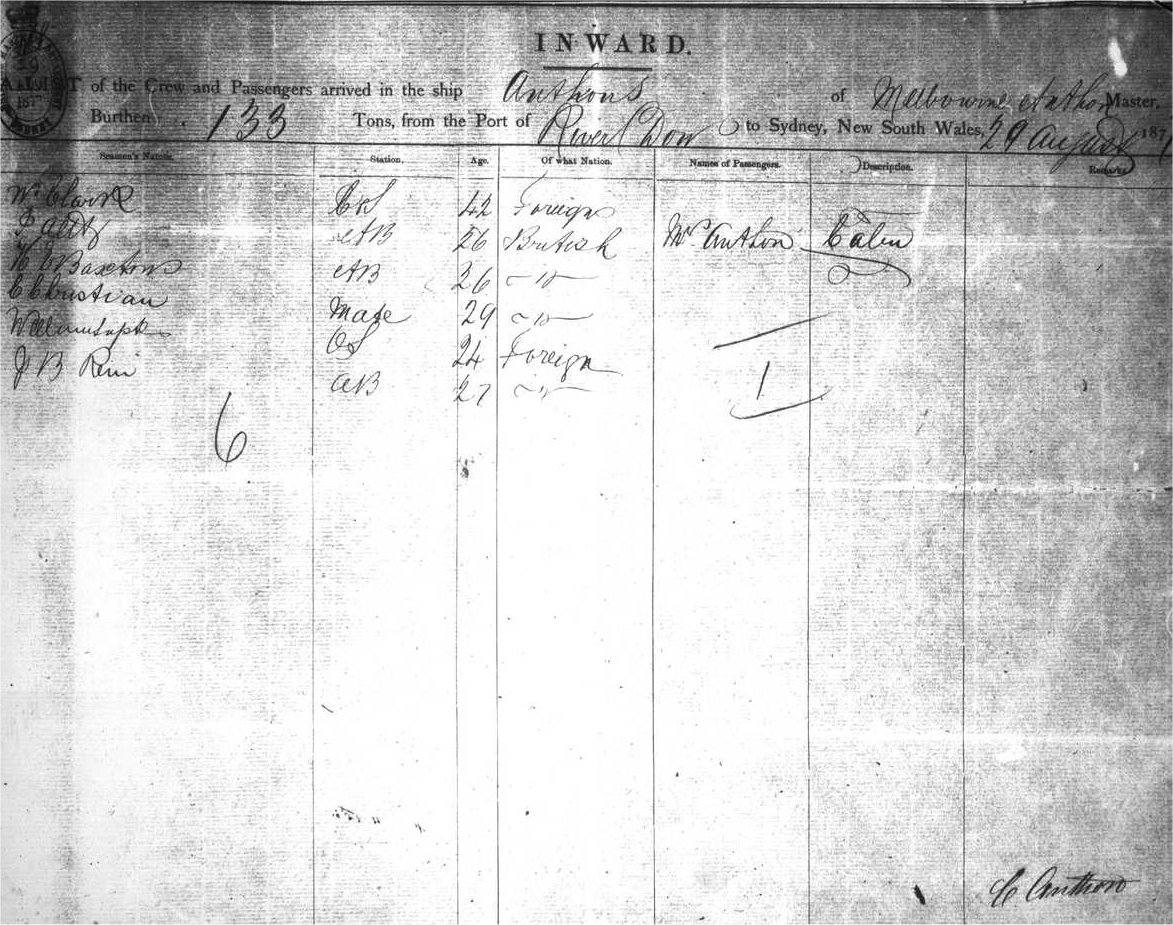 INWARD.
A LIST of the Crew and Passengers arrived in the ship Anthons of Melbourne Anthon Master,
Burthen 133 Tons, from the Port of River Don to Sydney, New South Wales, 29 August 187
Seamen's Names. Station. Age. Of what Nation. Names of Passengers. Description. Remarks
Wm Clark C&S 42 Foreign
AB 26 British Mrs Anthon Cabin
AB 36 - do -
C Christian Mate 29 - do -
OS 24 Foreign
J B AB 27 - do -
1
6
C Anthon